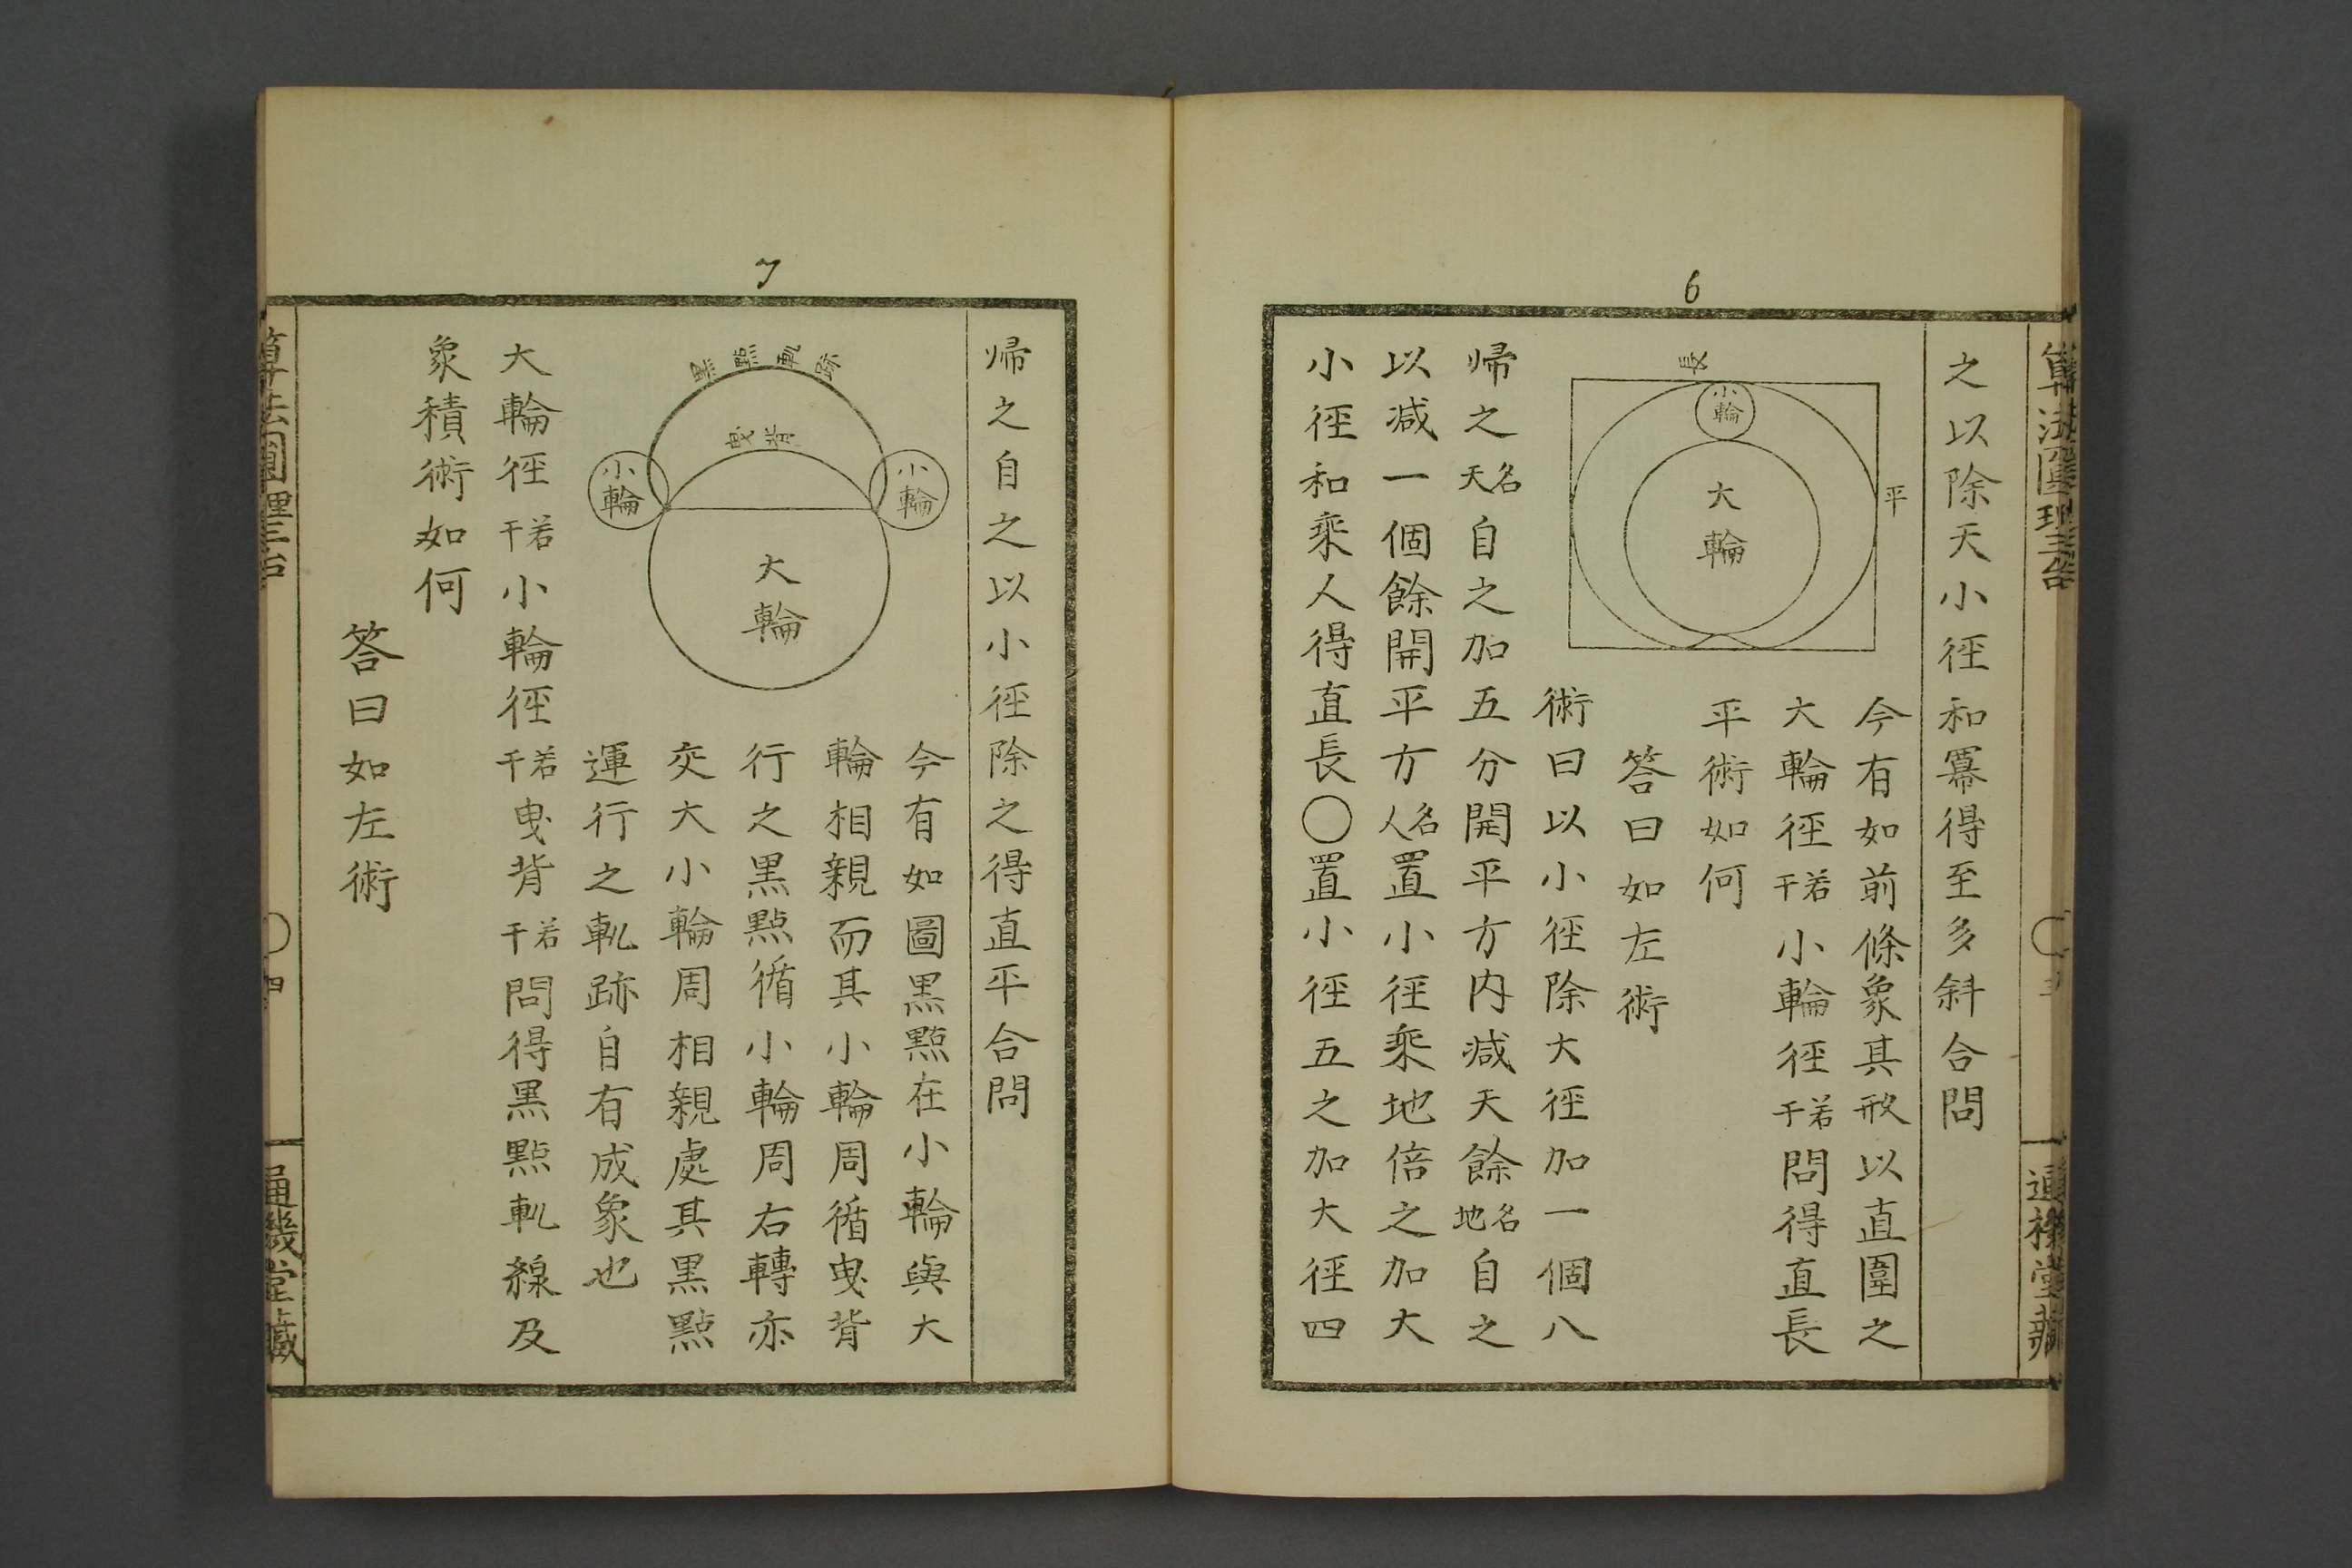 6
之以除天小徑和冪得至多斜合問
長
平
小輪
大輪
今有如前條象其形以直圍之
大輪徑若干小輪徑若干問得直長
平術如何
答曰如左術
術曰以小徑除大徑加一個八
帰之名天自之加五分開平方内減天餘名地自之
以減一個餘開平方名人置小徑乘地倍之加大
小徑和乘人得直長○置小徑五之加大徑四
7
帰之自之以小徑除之得直平合問
黒點軌跡
曳背
小輪
小輪
大輪
今有如圖黒點在小輪與大
輪相親而其小輪周循曳背
行之黒點循小輪周右轉亦
交大小輪周相親處其黒點
運行之軌跡自有成象也
大輪徑若干小輪徑若干曳背若干問得黒點軌線及
象積術如何
答曰如左術
通機堂藏